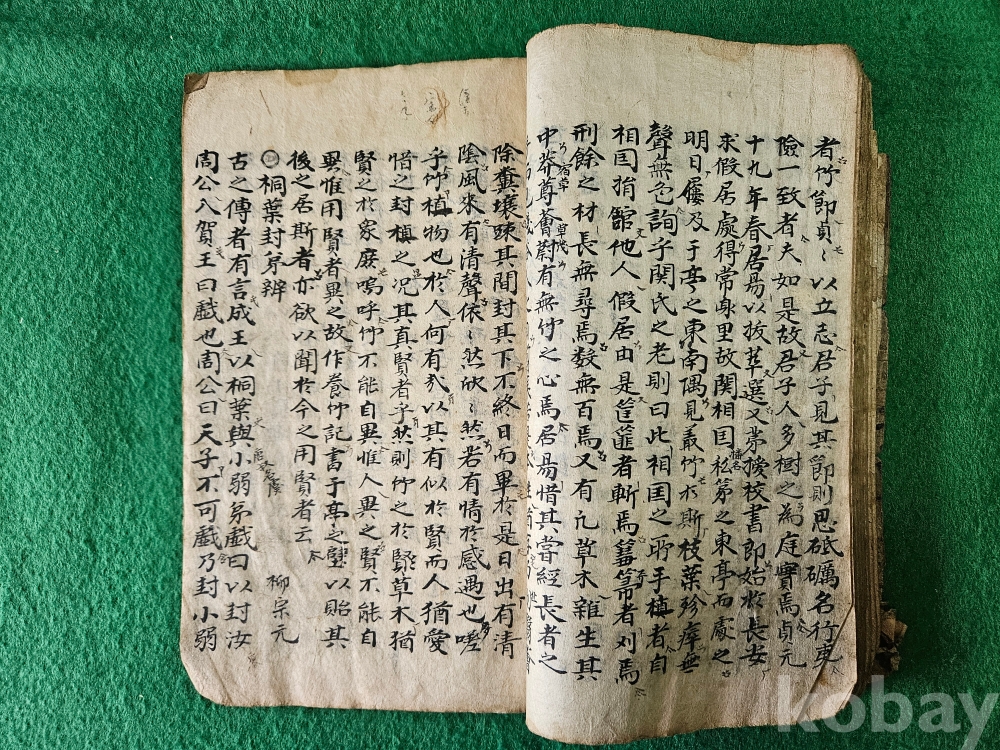 者竹節貞〻以立志君子見其節則思砥礪名行夷
險一致者夫如是故君子人多樹之為庭實焉貞元
十九年春居易以拔萃選又第授校書郎始於長安
求假居處得常樂里故関相囯私第之東亭而處之
明日屨及于亭之東南隅見叢竹於斯枝葉殄瘁無
聲無色詢于関氏之老則曰此相囯之所手植者自
相囯捐館他人假居由是筐篚者斬焉篲箒者刈焉
刑餘之材長無尋焉数無百焉又有凡草木雜生其
中莽尊薈蔚有無竹之心焉居易惜其嘗經長者之
除糞壤疎其間封其下不終日而畢於是日出有清
陰風來有清聲依〻然欣〻然若有情於感遇也嗟
乎竹植物也於人何有哉以其有似於賢而人猶愛
惜之封植之况其真賢者乎然則竹之於賢草木猶
賢之於眾庶嗚呼竹不能自異惟人異之賢不能自
異惟用賢者異之故作養竹記書于亭之壁以貽其
後之居斯者亦欲以聞於今之用賢者云
桐葉封弟辨 柳宗元
古之傳者有言成王以桐葉與小弱弟戲曰以封汝
周公入賀王曰戲也周公曰天子不可戲乃封小弱
kobay